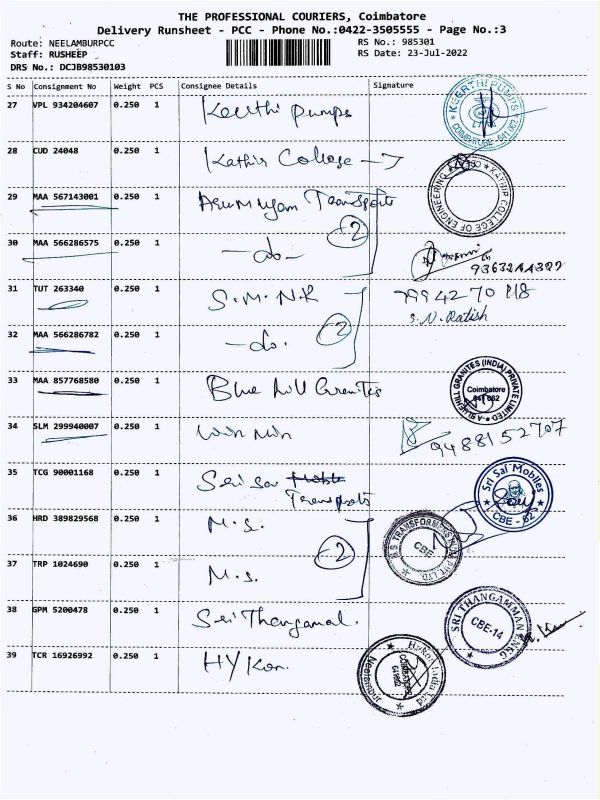 THE PROFESSIONAL COURIERS, Coimbatore
Delivery Runsheet - PCC - Phone No.:0422-3505555 - Page No.:3
Route: NEELAMBURPCC RS No.: 985301
Staff: RUSHEEP RS Date: 23-Jul-2022
DRS No.: DCJB98530103
S No Consignment No Weight PCS Consignee Details Signature
27 VPL 934204607 0.250 1 Keerthi Pumps KEERTHI PUMPS COIMBATORE
28 CUD 24048 0.250 1 Kathir College KATHIR COLLEGE OF ENGINEERING
29 MAA 567143001 0.250 1 Arumugam Transports
30 MAA 566286575 0.250 1 -do- 2
31 TUT 263340 0.250 1 S.M.N.R 99942 70 118
S.N. Ratish
32 MAA 566286782 0.250 1 -do- 2
33 MAA 857768580 0.250 1 Blue hill Granites BLUEHILL GRANITES (INDIA) PRIVATE LIMITED Coimbatore
34 SLM 299940007 0.250 1 Win Win 9488152707
35 TCG 90001168 0.250 1 Sri Sai Mobile Sri Sai Mobiles CBE - 62
Transports
36 HRD 389829568 0.250 1 M.S. TRANSFORMERS PVT LTD. CBE
37 TRP 1024690 0.250 1 M.S. 2
38 GPM 5200478 0.250 1 Sri Thangamal. SRI THANGAMMAN ENGG CBE-14
39 TCR 16926992 0.250 1 HYKon. Hykon India Ltd Neelambur COIMBATORE